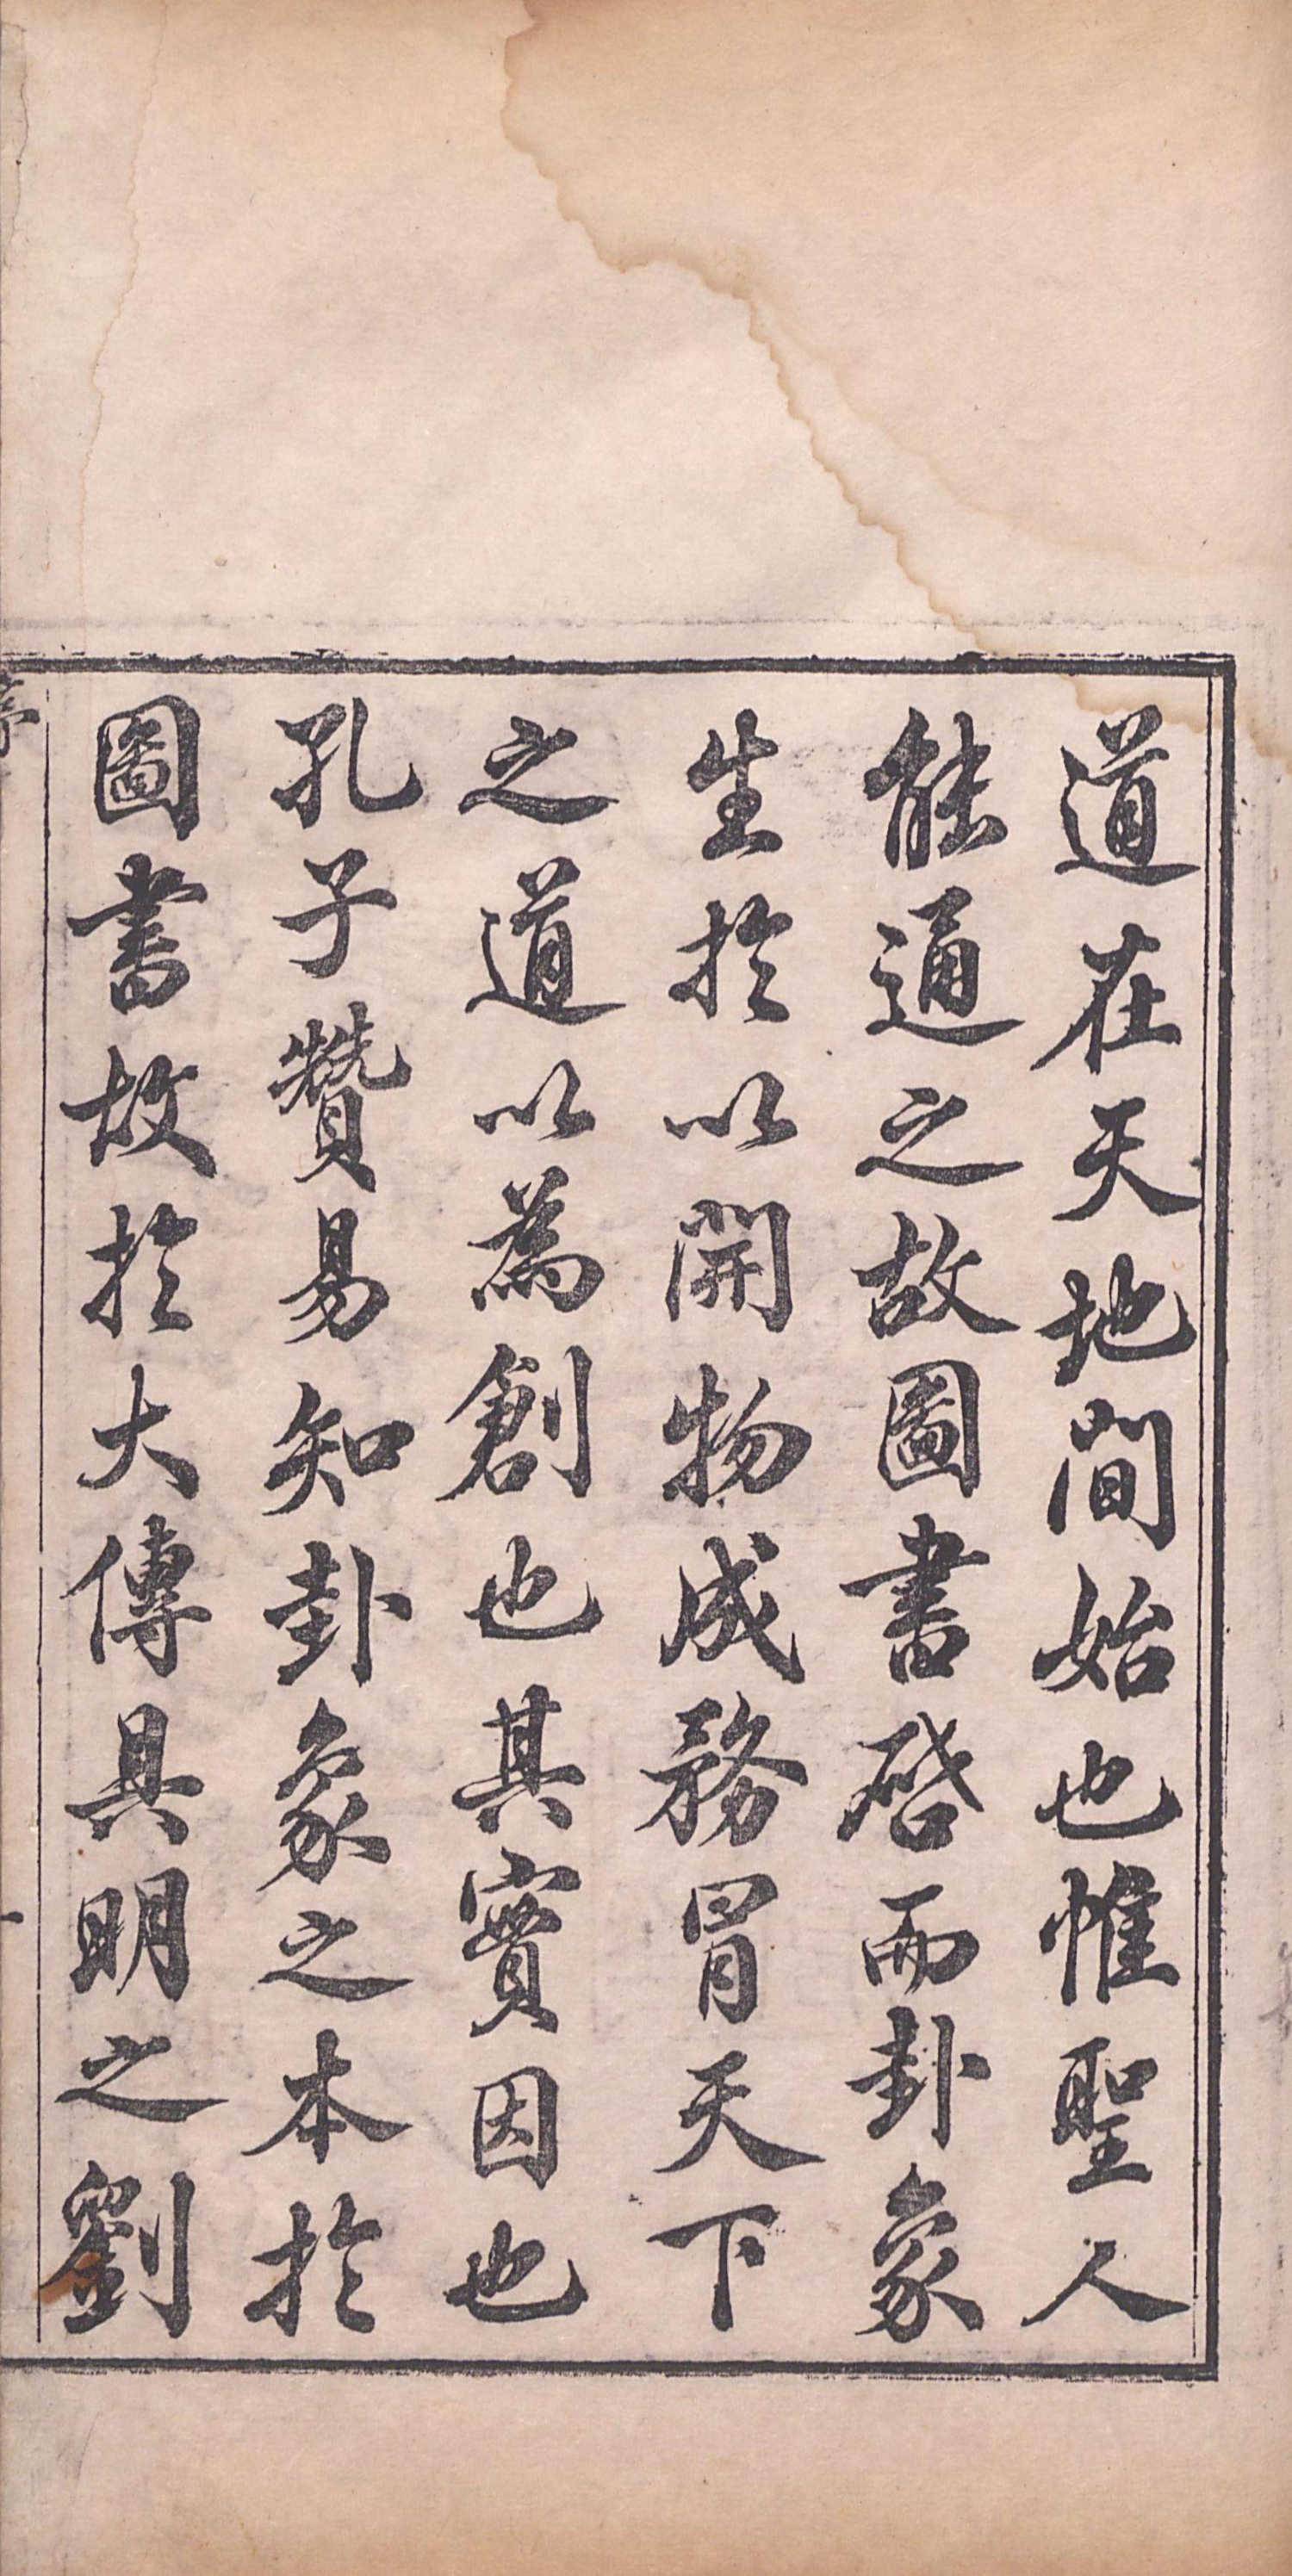 道在天地間始也惟聖人
能通之故圖書啓而卦象
生於以開物成務冒天下
之道以為創也其實因也
孔子贊易知卦象之本於
圖書故於大傳具明之劉
序
一